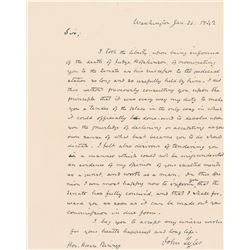 Washington Jan. 21. 1842
Sir,
I took the liberty, upon being informed
of the death of Judge Hopkinson, of nominating you
to the Senate as his successor to the judicial
station so long and so usefully held by him. I did
this without previously consulting you upon the
principle that it was every way my duty to make
you a tender of the place in the only way in which
it could officially be done and to devolve upon
you the privilege of declining or accepting as your
own sense of what was becoming might be about
dictate. I felt also desirous of tendering you
in a manner which could not be misunderstood
an evidence of my sense of your exalted merits
as a jurist, and worth as a man. In this decision
I am most happy now to inform you that the
Senate has fully concurred, and that I shall forward
you as soon as it can be made out your
commission in due form.
I beg you to accept my sincere wishes
for your health happiness and long life.
John Tyler
Hon. Horace Binney